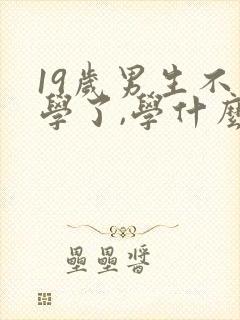 19歲男生不
學了,學什麼
壘壘醬